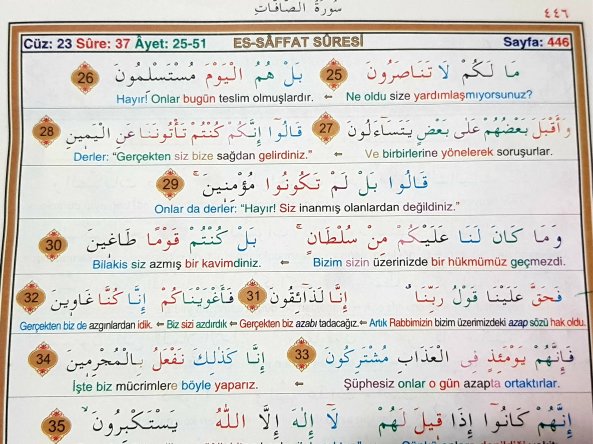 سُورَةُ الصَّافَّاتِ ٤٤٦
Cüz: 23 Sûre: 37 Âyet: 25-51 ES-SÂFFAT SÛRESİ Sayfa: 446
مَا لَكُمْ لَا تَنَاصَرُونَ 25 بَلْ هُمُ الْيَوْمَ مُسْتَسْلِمُونَ 26
Hayır! Onlar bugün teslim olmuşlardır. ⇐ Ne oldu size yardımlaşmıyorsunuz?
وَاَقْبَلَ بَعْضُهُمْ عَلٰى بَعْضٍ يَتَسَٓاءَلُونَ 27 قَالُٓوا اِنَّكُمْ كُنْتُمْ تَأْتُونَنَا عَنِ الْيَمٖينِ 28
Derler: “Gerçekten siz bize sağdan gelirdiniz.” ⇐ Ve birbirlerine yönelerek soruşurlar.
قَالُوا بَلْ لَمْ تَكُونُوا مُؤْمِنٖينَۚ 29
Onlar da derler: “Hayır! Siz inanmış olanlardan değildiniz.”
وَمَا كَانَ لَنَا عَلَيْكُمْ مِنْ سُلْطَانٍۚ بَلْ كُنْتُمْ قَوْمًا طَاغٖينَ 30
Bilakis siz azmış bir kavimdiniz. ⇐ Bizim sizin üzerinizde bir hükmümüz geçmezdi.
فَحَقَّ عَلَيْنَا قَوْلُ رَبِّنَاۗ اِنَّا لَذَٓائِقُونَ 31 فَاَغْوَيْنَاكُمْ اِنَّا كُنَّا غَاوٖينَ 32
Gerçekten biz de azgınlardan idik. ⇐ Biz sizi azdırdık ⇐ Gerçekten biz azabı tadacağız. ⇐ Artık Rabbimizin bizim üzerimizdeki azap sözü hak oldu.
فَاِنَّهُمْ يَوْمَئِذٍ فِى الْعَذَابِ مُشْتَرِكُونَ 33 اِنَّا كَذٰلِكَ نَفْعَلُ بِالْمُجْرِمٖينَ 34
İşte biz mücrimlere böyle yaparız. ⇐ Şüphesiz onlar o gün azapta ortaktırlar.
اِنَّهُمْ كَانُٓوا اِذَا قٖيلَ لَهُمْ لَٓا اِلٰهَ اِلَّا اللّٰهُ يَسْتَكْبِرُونَۙ 35